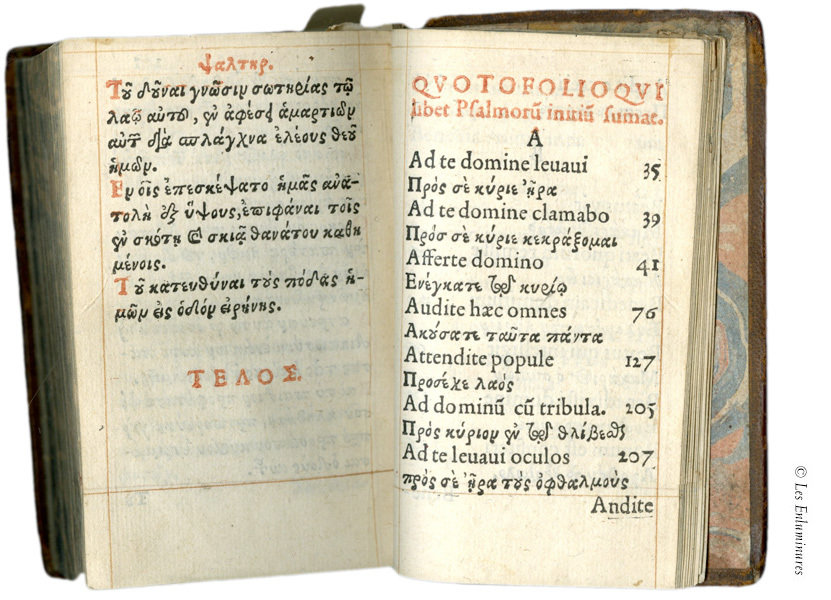 ψαλτηρ.
Τοῦ δοῦναι γνῶσιν σωτηρίας τῷ
λαῷ αὐτοῦ, ἐν ἀφέσει ἁμαρτιῶν
αὐτῶν διὰ σπλάγχνα ἐλέους θεοῦ
ἡμῶν.
Ἐν οἷς ἐπεσκέψατο ἡμᾶς ἀνα-
τολὴ ἐξ ὕψους, ἐπιφάναι τοῖς
ἐν σκότει καὶ σκιᾷ θανάτου καθη
μένοις.
Τοῦ κατευθύναι τοὺς πόδας ἡ-
μῶν εἰς ὁδὸν εἰρήνης.
ΤΕΛΟΣ.
QVOTO FOLIO QVI
libet Psalmorũ initiũ sumat.
A
Ad te domine leuaui 35
Πρὸς σὲ κύριε ἦρα
Ad te domine clamabo 39
Πρόσ σὲ κύριε κεκράξομαι
Afferte domino 41
Ενέγκατε τῷ κυρίῳ
Audite hæc omnes 76
Ακούσατε ταῦτα πάντα
Attendite popule 127
Προσέχε λαὸς
Ad dominũ cũ tribula. 205
Πρὸς κύριον ἐν τῷ θλίβεσθαι
Ad te leuaui oculos 207
πρὸς σὲ ἦρα τοὺς ὀφθαλμοὺς
Andite
© Les Enluminures